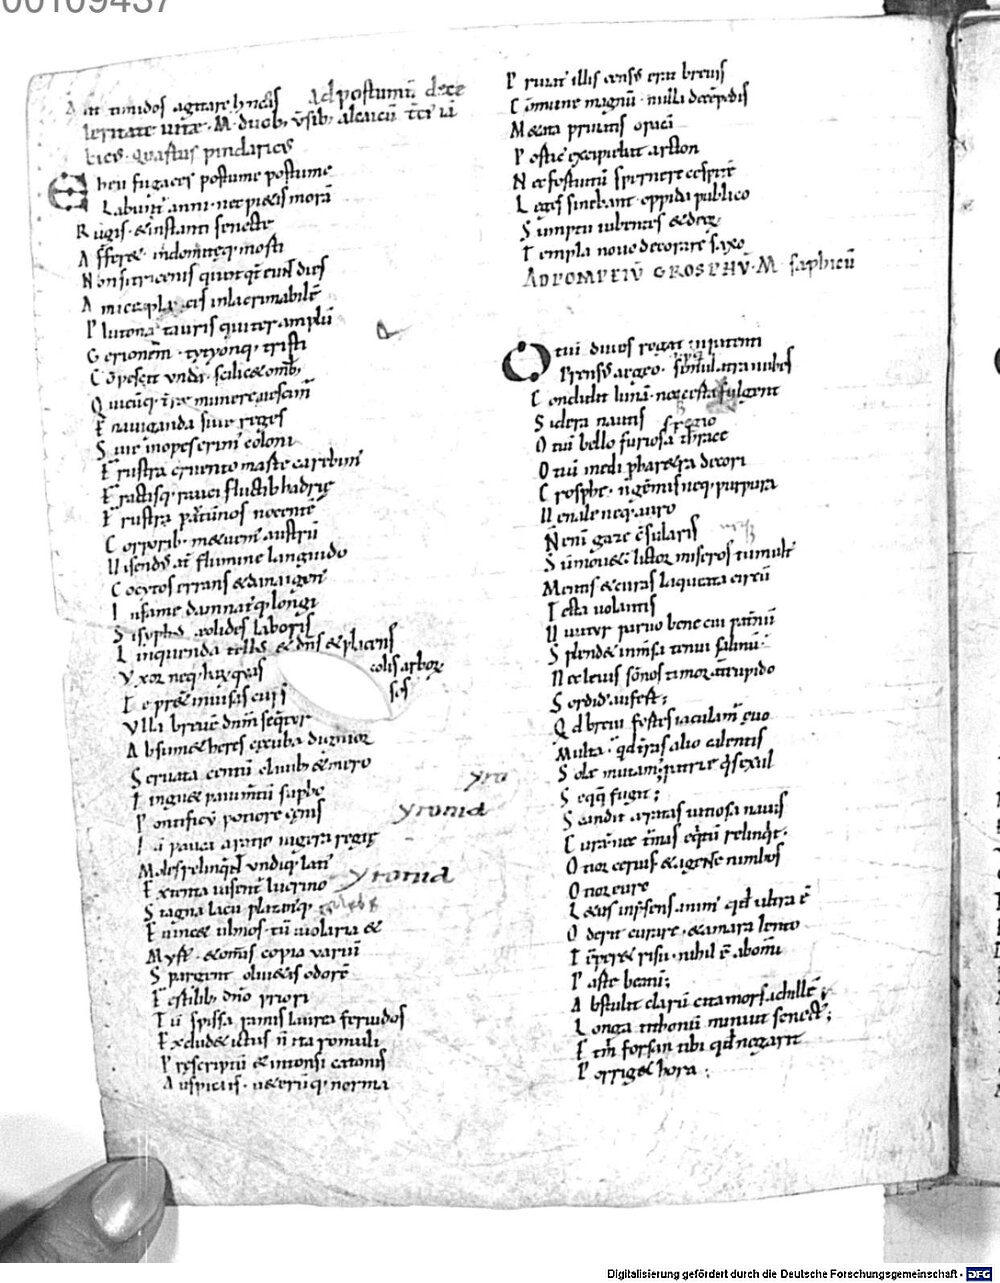 00109437
Aut timidos agitare lyncas Ad postumū de ce
leritate uitæ · M · duob; usib; alcaicū
Eheu fugaces postume postume
Labunt anni · nec pietas morā
Rugis · & instanti senecte
Afferet · indomiteq; morti
Non si tricenis quotqt eunt dies
Amice places inlacrimabilē
Plutona tauris qui ter amplū
Gerionem · tytyonq; tristi
Cōpescit unda · scilic& omīb;
Quicūq; tre munere uescim
Enauiganda siue reges
Siue inopes erim coloni
Frustra cruento marte carebim
Fractisq; rauci fluctib hadrię
Frustra p autūnos nocentē
Corporib; metuem austrū
Uisend at flumine languido
Cocytos errans & danai gen
Infame damnatq; longi
Sisyphus eolides laboris
Linquenda tellus & dom & placens
Vxor neq; harū quas colis arborū
Te pret inuisas cupssos
Vlla breuē dnm sequetur
Absum& heres cecuba dignior
Seruata centū clauib; & mero
Tinguet pauimtū supbo
Pontificū potiore cenis
Iā pauca aratro iugera regię
Moles relinqnt undiq; lati
Extenta uisent lucrino
Stagna lacu platanq;
Euincet ulmos · tū uiolaria &
Myrt · & omīs copia nariū
Spargent oliuetis odorē
Fertilib; dno priori
Tū spissa ramis laurea feruidos
Exclud& ictus n ita romuli
Prescriptū & intonsi catonis
Auspiciis · ueterūq; norma
yro
yronia
yronia
Priuat illis census erat breuis
Cōmune magnū · nulla decēpedis
Metata priuatis opacā
Porticus excipiebat arcton
Nec fortuitū spernere cespitē
Leges sinebant · oppida publico
Sumptu iubentes & deoz
Templa nouo decorare saxo
AD POMPEIŪ GROSPHŪ · M saphicū
Otiū diuos rogat in patenti
Prensus aegeo · simul atra nubes
Condidit lunā · neq; certa fulgent
Sidera nautis
Otiū bello furiosa thrace
Otiū medi pharetra decori
Grosphe · n gemmis neq; purpura
Uenale neq; auro
Nen gaze csularis
Sūmouet lictor miseros tumult
Mentis & curas laqueata circū
Tecta uolantis
Uiuitur paruo bene cui patnū
Splendet in msa tenui salinū
Nec leuis sōnos timor aut cupido
Sordid aufert;
Qd breui fortes iaculam euo
Multa · qd tras alio calentis
Sole mutam; patrie qs exul
Se qq fugit;
Scandit aeratas uitiosa nauis
Cura · nec tmas eqtū relinqt ·
Otior ceruis & agente nimbos
Otior euro
Letus in psens anim qd ultra ē
Oderit curare · & amara lento
Tēperet risu · nihil ē ab omi
Parte beatū;
Abstulit clarū cita mors achillē;
Longa tithonū minuit senect;
Et m forsan tibi qd negarit
Porriget hora ;
Digitalisierung gefördert durch die Deutsche Forschungsgemeinschaft - DFG